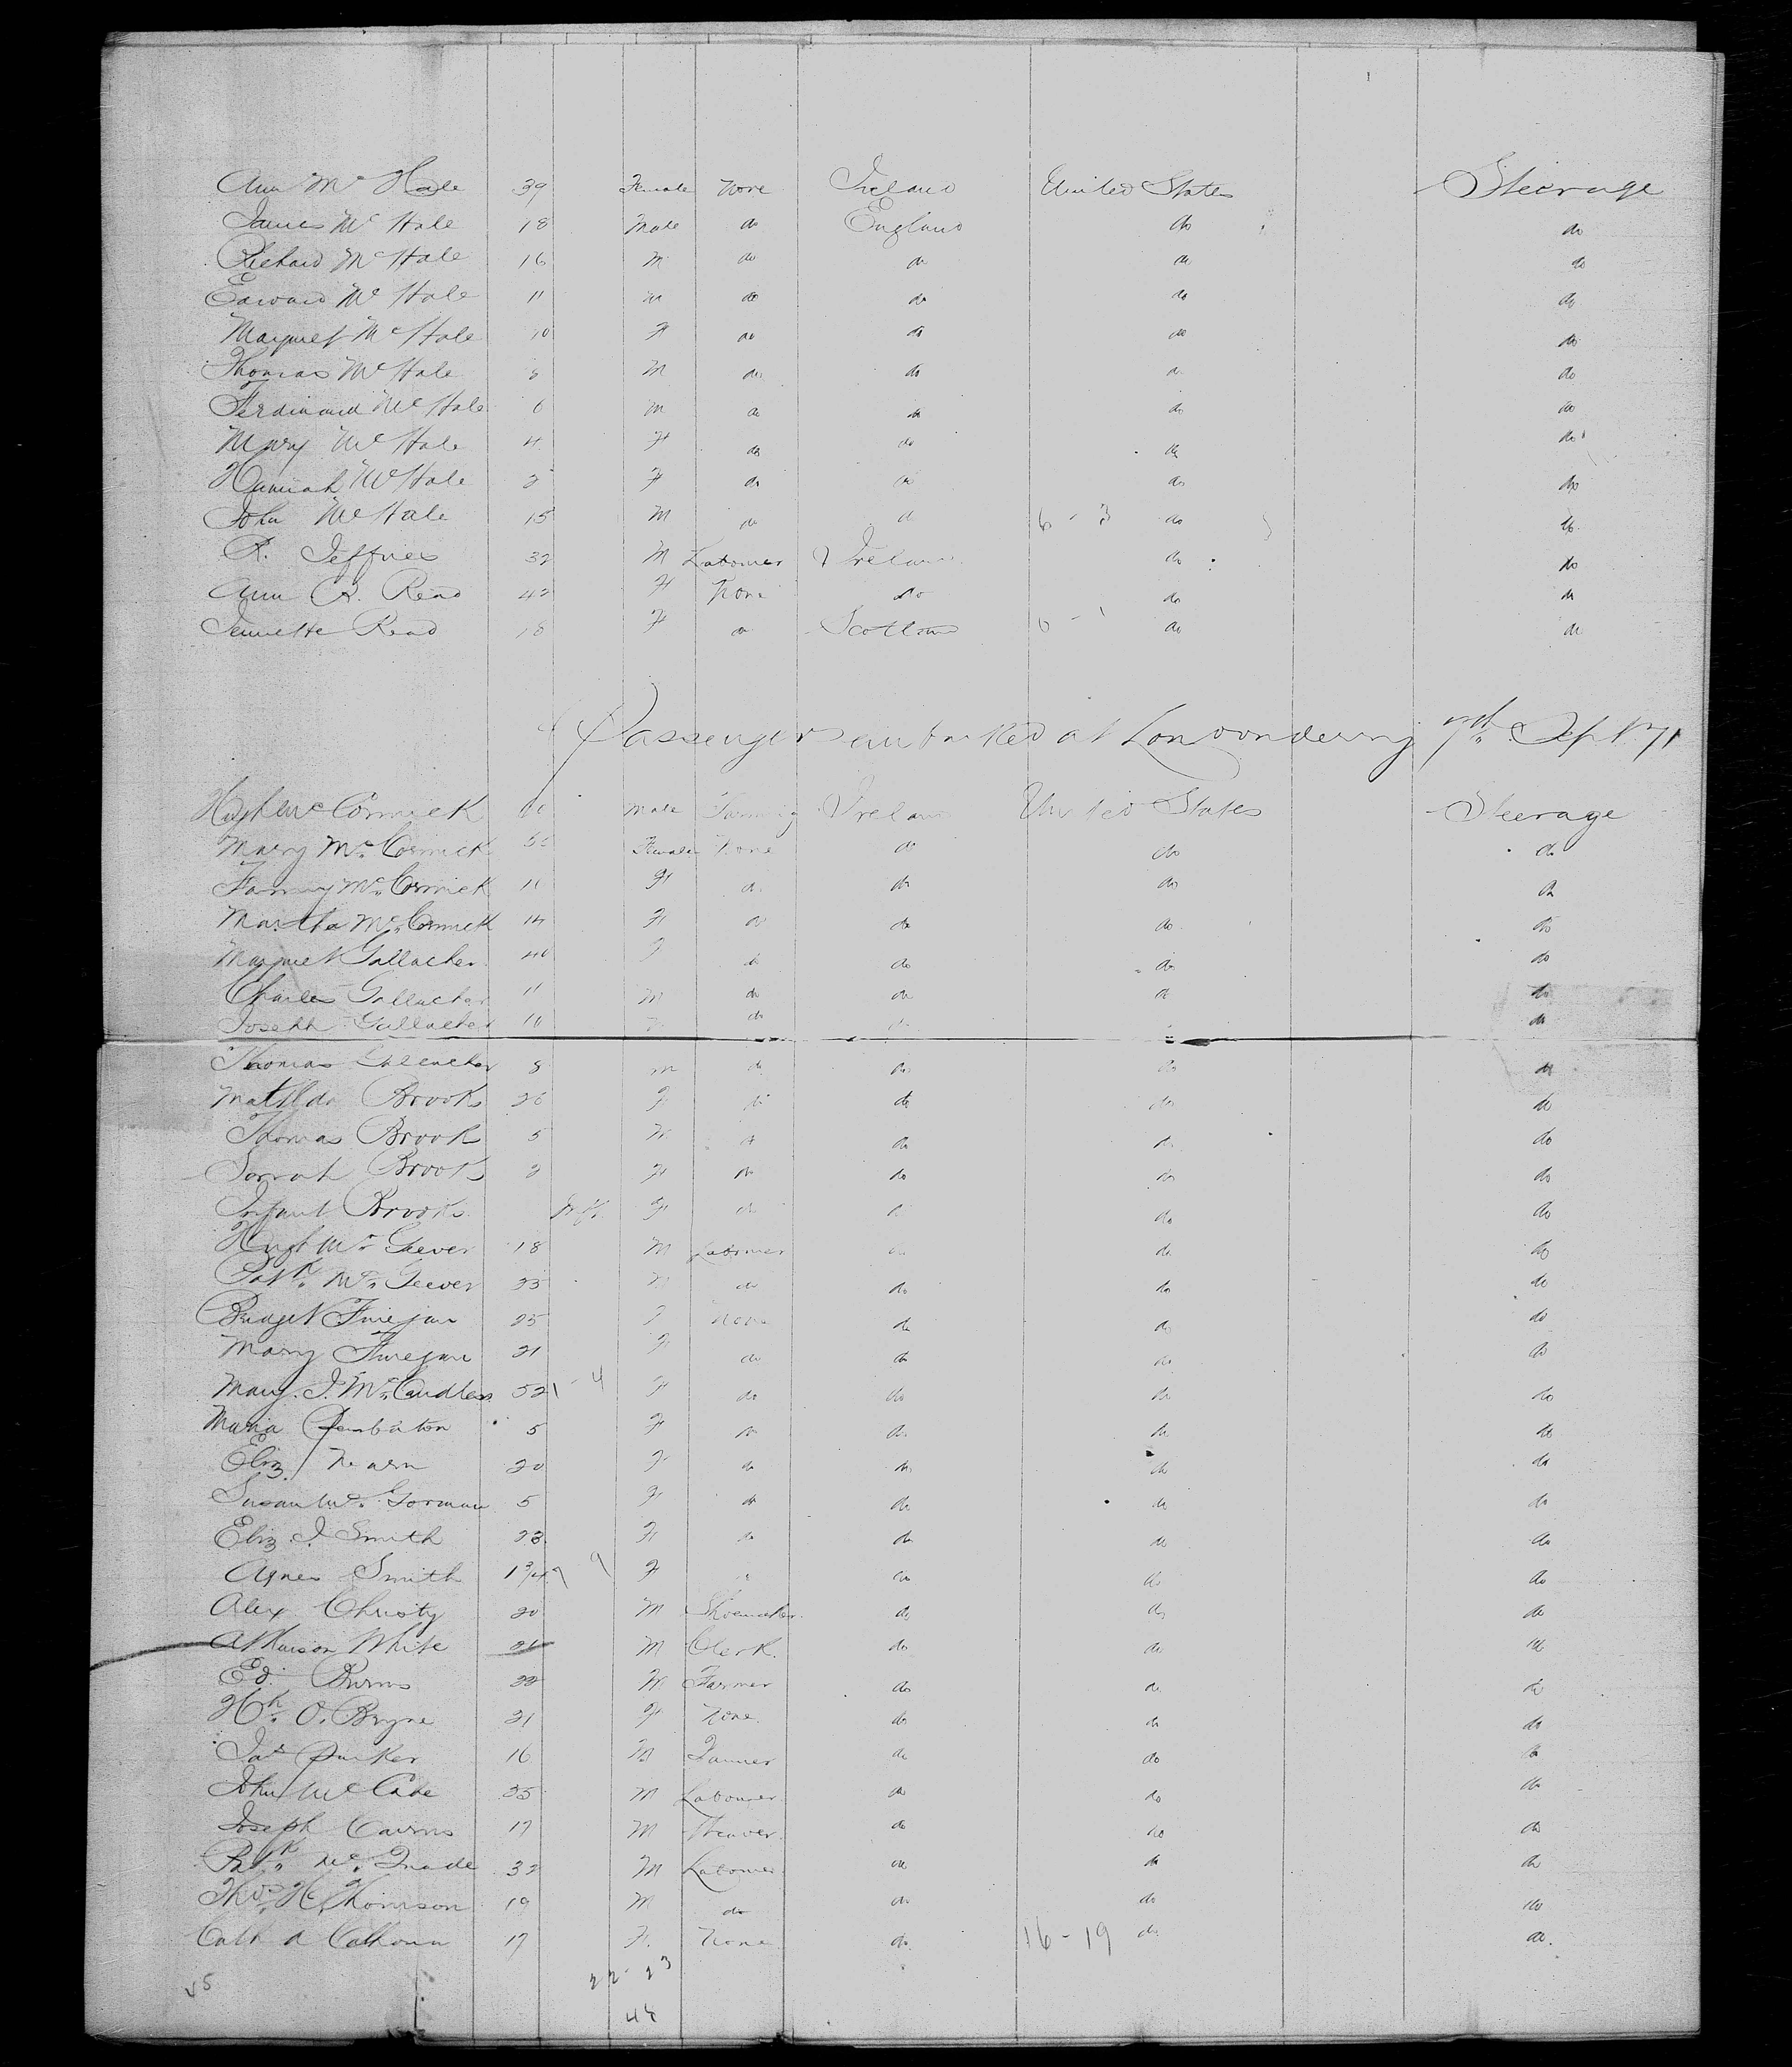 Ann Mc Hale 39 Female None Ireland United States Steerage
James Mc Hale 18 Male do England do do
Richard Mc Hale 16 M do do do do
Edward Mc Hale 11 M do do do do
Margret Mc Hale 10 F do do do do
Thomas Mc Hale 8 M do do do do
Ferdinand Mc Hale 6 M do do do do
Mary Mc Hale 4 F do do do do
Hannah Mc Hale 2 F do do do do
John Mc Hale 15 M do do 6 - 3 do do
R. Jeffries 32 M Labourer Ireland do do
Ann R. Read 42 F None do do do
Jennette Read 18 F do Scotland do do
Passengers embarked at Londonderry 7th Sept. 71
Hugh Mc Cormick Male Farming Ireland United States Steerage
Mary Mc Cormick Female None do do do
Fanny Mc Cormick F do do do do
Martha Mc Cormick 14 F do do do do
Margret Gallacher 40 F do do do do
Charles Gallacher 11 M do do do do
Joseph Gallacher 10 M do do do
Thomas Gallacher 8 M do do do do
Matilda Brooks 26 F do do do do
Thomas Brook 5 M do do do do
Sarrah Brooks 2 F do do do do
Infant Brooks Inft F do do do do
Hugh Mc Geever 18 M Labourer do do do
Patk Mc Geever 23 M do do do do
Bridget Finegan 25 F None do do do
Mary Finegan 21 F do do do do
Mary J. Mc Candless 52 1 - 4 F do do do do
Maria Pembaton 5 F do do do do
Eliz. Nearn 20 F do do do do
Susan Mc Gorman 5 F do do do do
Eliz J Smith 23 F do do do do
Agnes Smith 1 3/4 F do do do
Alex Christy 20 M Shoemaker do do do
Atkinson White 21 M Clerk do do do
Ed. Burns 22 M Farmer do do do
Hh. O. Bryne 21 F None do do do
Jas Parker 16 M do do do
John Mc Cabe 25 M Labourer do do do
Joseph Cairns 17 M Weaver do do do
Patk Mc Quade 32 M Labourer do do do
Thos. H. Thomson 19 M do do do do
Cath A Calhoun 17 F None do 16 - 19 do do
22 - 23